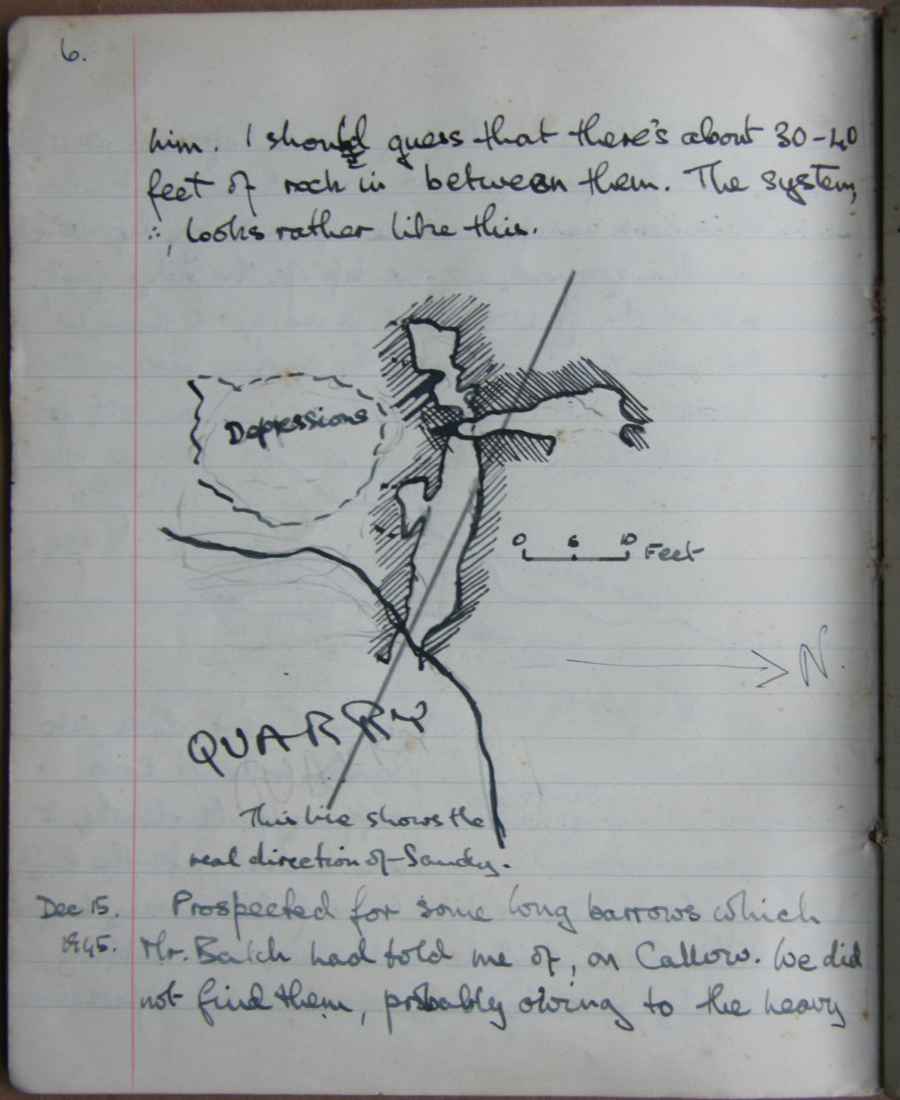 6.
him. I should guess that there's about 30-40
feet of rock in between them. The system,
∴, looks rather like this.
Deppessions
0 5 10 Feet
N.
QUARRY
This line shows the
real direction of Sandy.
Dec 15. Prospected for some long barrows which
1945. Mr. Balch had told me of, on Callow. We did
not find them, probably owing to the heavy